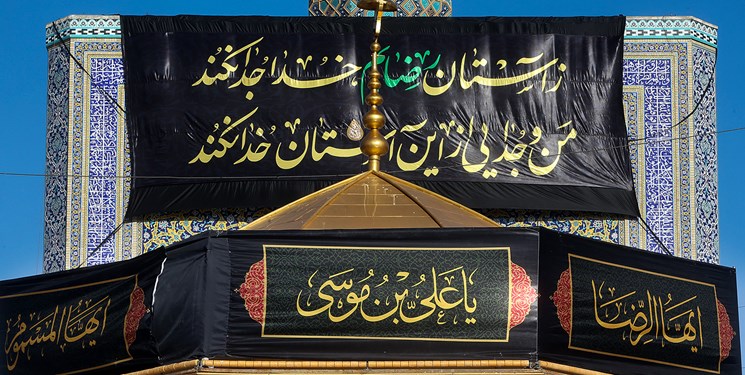 ز آستان رضایم خدا جدا نکند
من و جدایی از این آستان خدا نکند
یا علی بن موسی
ایها الرضا
ایها المسموم